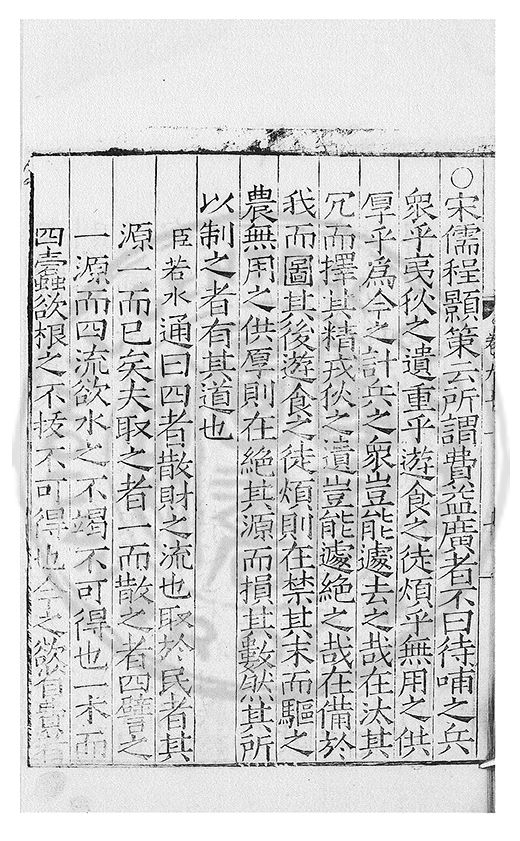 ○宋儒程顥策云所謂費益廣者不曰待哺之兵
衆乎夷狄之遺重乎遊食之徒煩乎無用之供
厚乎爲今之計兵之衆豈能遽去之哉在汰其
冗而擇其精戎狄之遺豈能遽絶之哉在備於
我而圖其後遊食之徒煩則在禁其末而驅之
農無用之供厚則在絶其源而損其數然其所
以制之者有其道也
臣若水通曰四者散財之流也取於民者其
源一而已矣夫取之者一而散之者四譬之
一源而四流欲水之不竭不可得也一木而
四蠹欲根之不拔不可得也今之欲省費者
卷九十